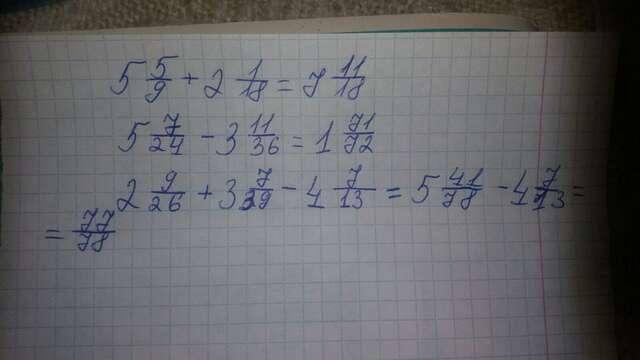 5 5/9 + 2 1/18 = 7 11/18
5 7/24 - 3 11/36 = 1 71/72
2 9/26 + 3 7/39 - 4 7/13 = 5 41/78 - 4 7/13 =
= 77/78